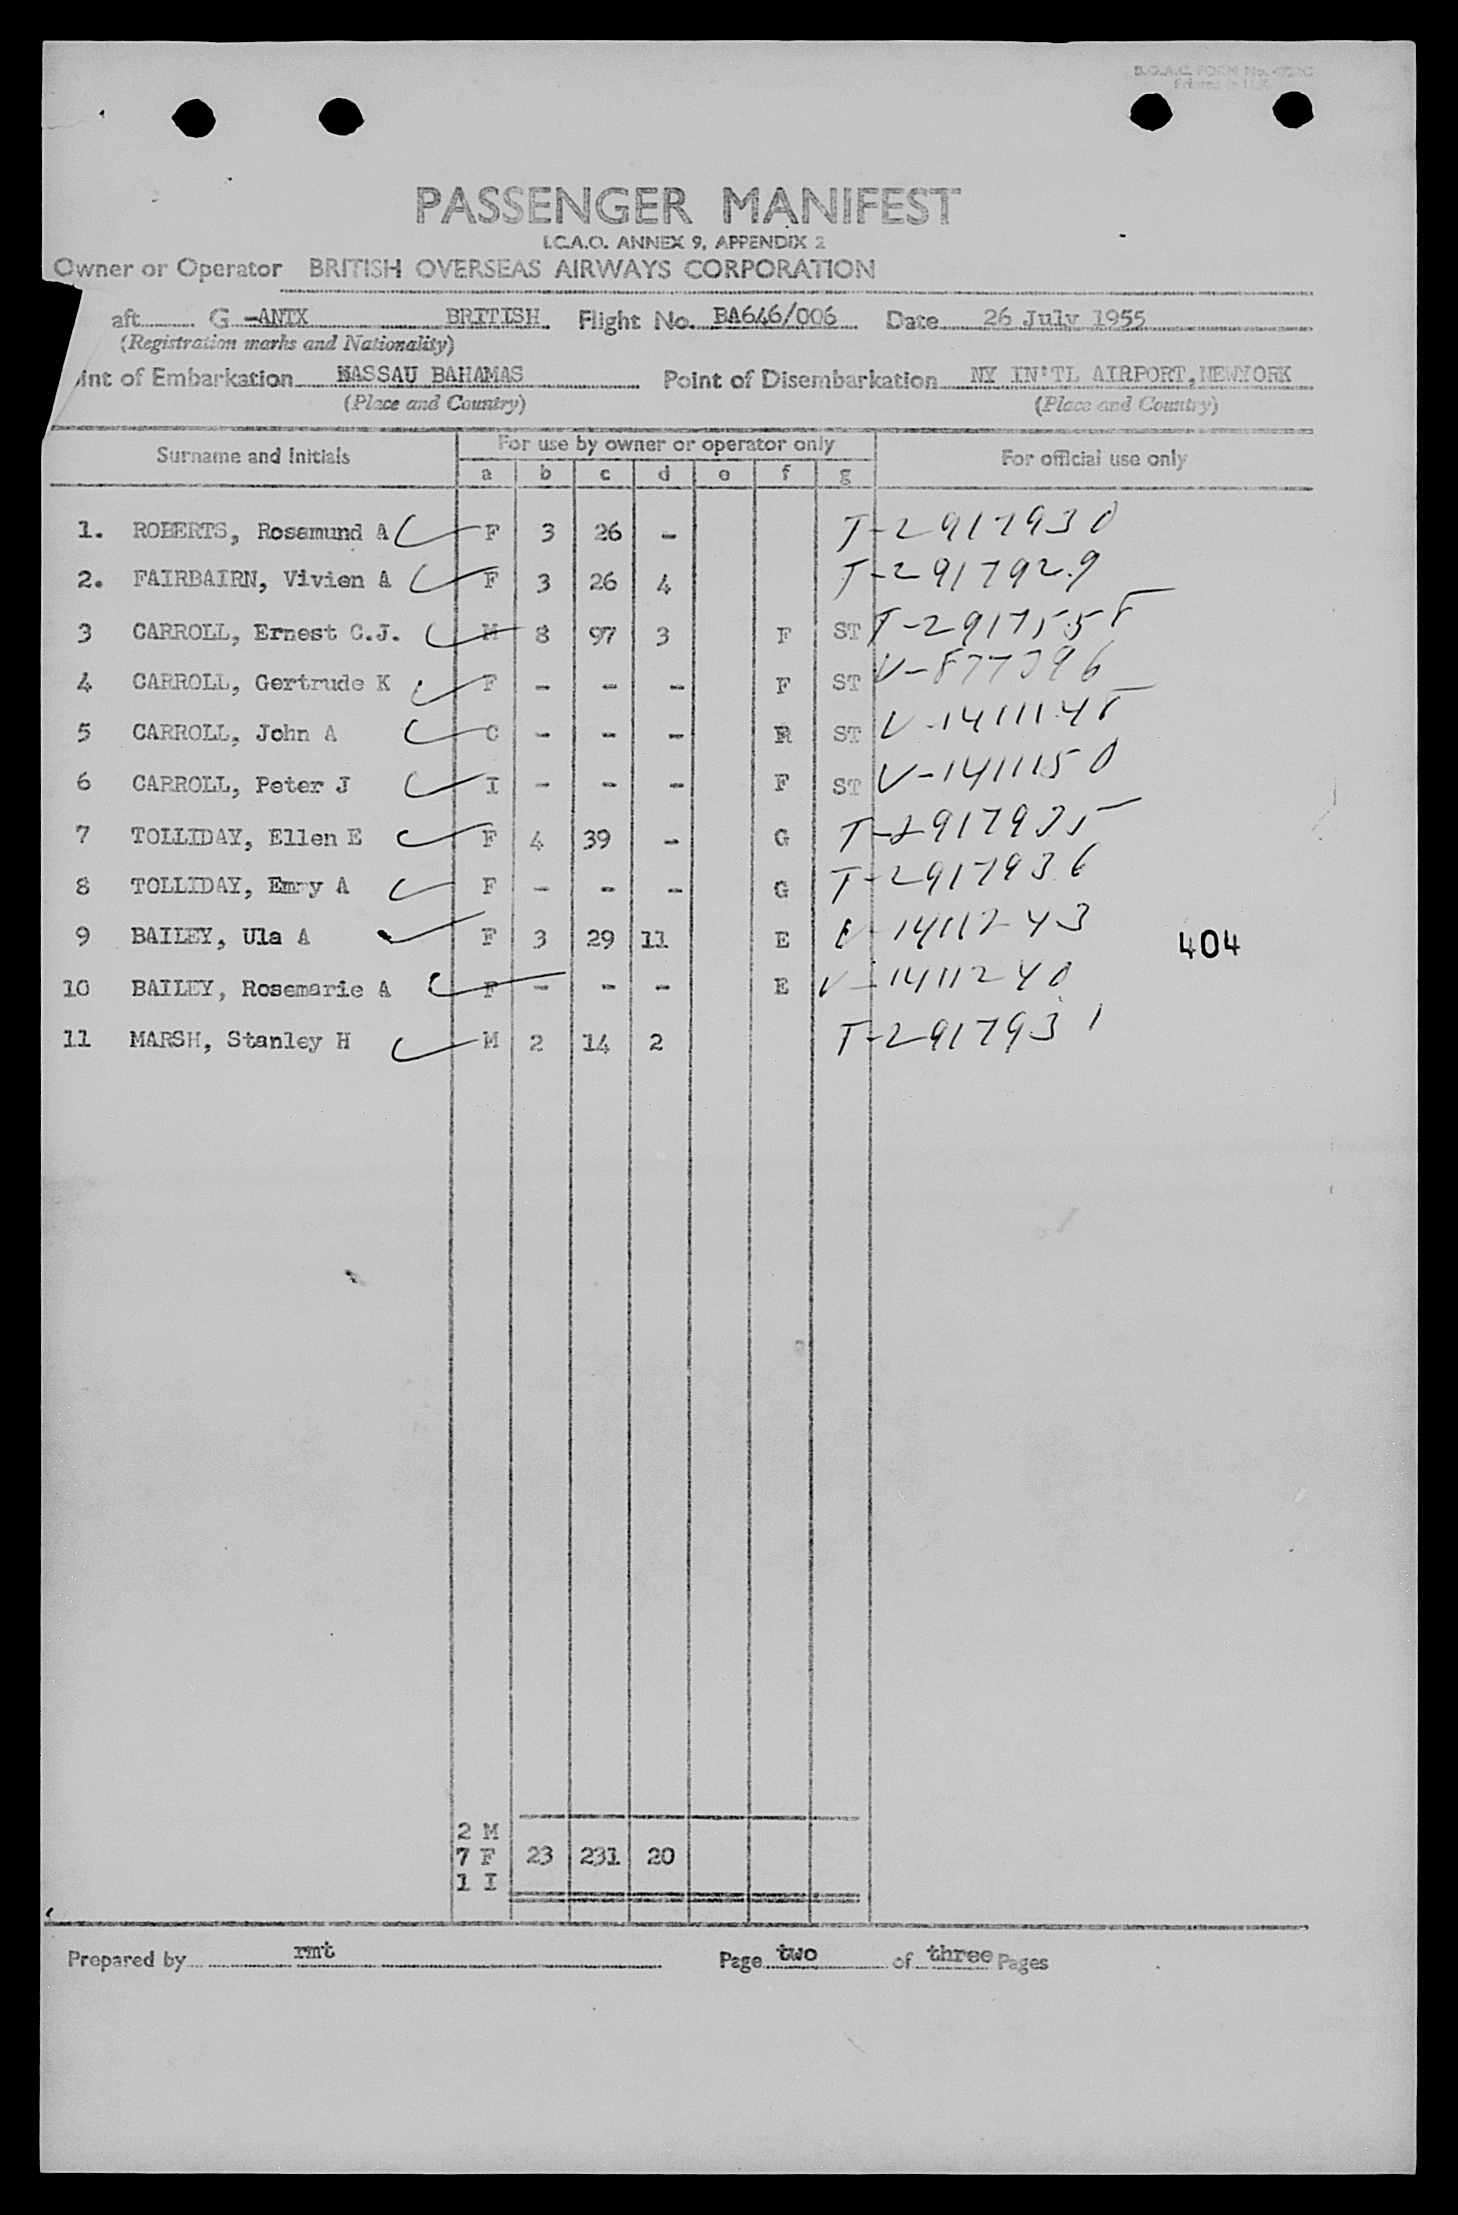 PASSENGER MANIFEST
I.C.A.O. ANNEX 9, APPENDIX 2
Owner or Operator BRITISH OVERSEAS AIRWAYS CORPORATION
aft G -ANTX BRITISH Flight No. BA646/006 Date 26 July 1955
(Registration marks and Nationality)
int of Embarkation NASSAU BAHAMAS Point of Disembarkation NY IN'TL AIRPORT, NEWYORK
(Place and Country) (Place and Country)
Surname and Initials For use by owner or operator only For official use only
a b c d e f g
1. ROBERTS, Rosamund A F 3 26 - T-2917930
2. FAIRBAIRN, Vivien A F 3 26 4 T-2917929
3 CARROLL, Ernest C.J. M 8 97 3 F ST T-2917558
4 CARROLL, Gertrude K F - - - F ST V-877396
5 CARROLL, John A C - - - F ST V-1411148
6 CARROLL, Peter J I - - - F ST V-1411150
7 TOLLIDAY, Ellen E F 4 39 - G T-2917935
8 TOLLIDAY, Emry A F - - - G T-2917936
9 BAILEY, Ula A F 3 29 11 E V-1411243
404
10 BAILEY, Rosemarie A F - - - E V-1411240
11 MARSH, Stanley H M 2 14 2 T-2917931
2 M
7 F 23 231 20
1 I
Prepared by rmt Page two of three Pages